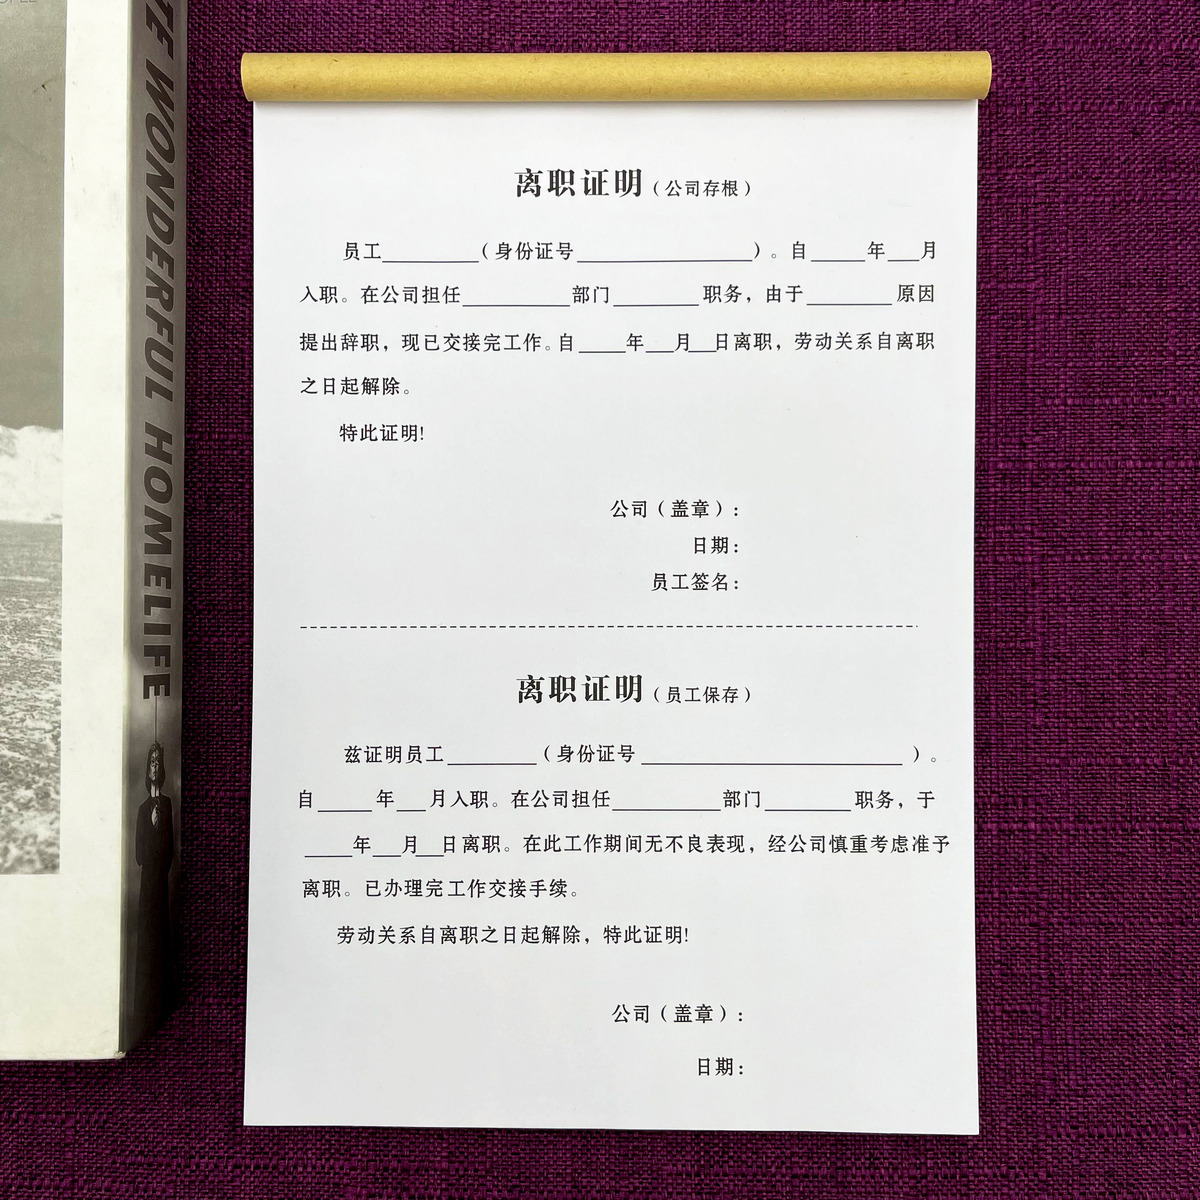 ZE WONDERFUL HOMELIFE
离职证明（公司存根）
员工________（身份证号______________）。自____年__月
入职。在公司担任________部门______职务，由于______原因
提出辞职，现已交接完工作。自____年__月__日离职，劳动关系自离职
之日起解除。
特此证明!
公司（盖章）：
日期：
员工签名：
离职证明（员工保存）
兹证明员工______（身份证号____________________）。
自____年__月入职。在公司担任________部门______职务，于
____年__月__日离职。在此工作期间无不良表现，经公司慎重考虑准予
离职。已办理完工作交接手续。
劳动关系自离职之日起解除，特此证明!
公司（盖章）：
日期：